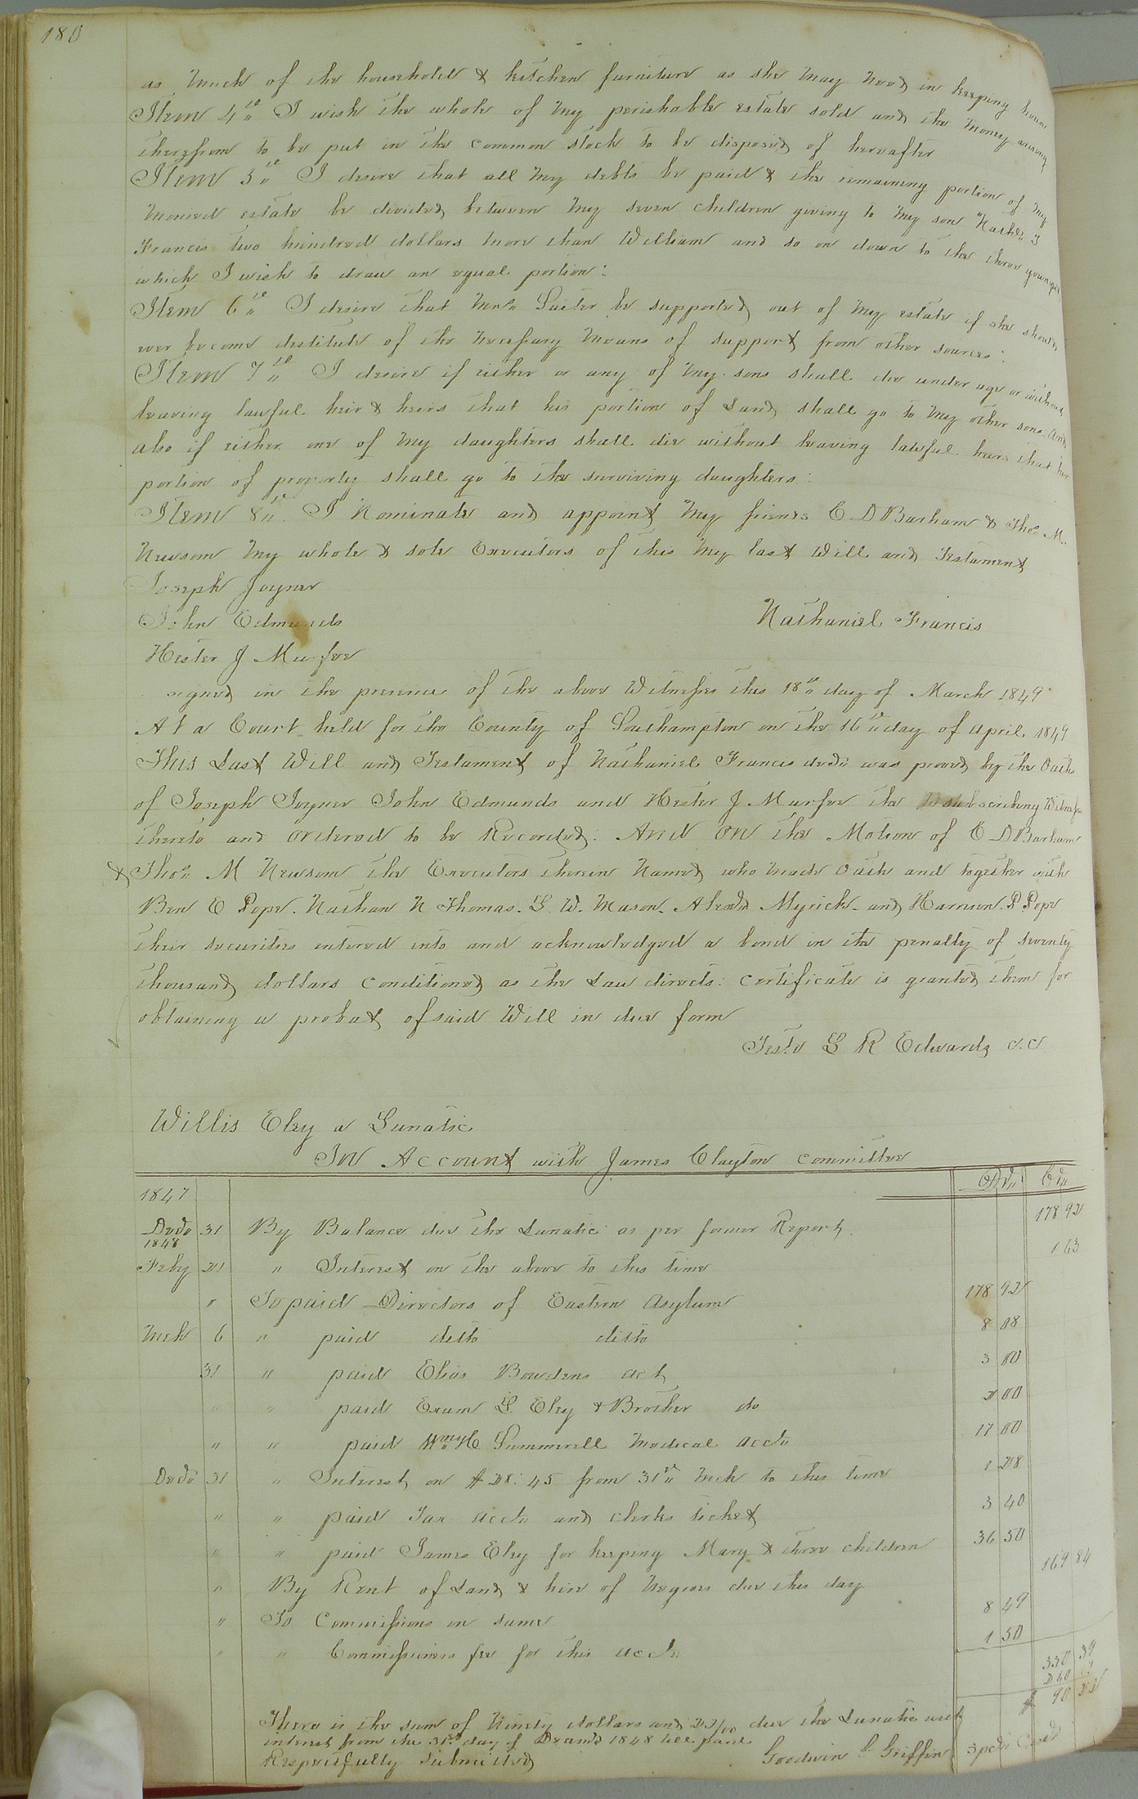 180
as much of the household & kitchen furniture as she may need in keeping house
Item 4th I wish the whole of my perishable estate sold and the money arising
therefrom to be put in the common stock to be disposed of hereafter
Item 5th I desire that all my debts be paid & the remaining portion of my
monied estate be divided between my seven children giving to my son Nathl. J
Francis two hundred dollars more than William and so on down to the three younger
which I wish to draw an equal portion.
Item 6th I desire that Mrs Suiter be supported out of my estate if she should
ever become destitute of the necessary means of support from other sources.
Item 7th I desire if either or any of my sons shall die under age or without
leaving lawful heir & heirs that his portion of Land shall go to my other sons. And
also if either one of my daughters shall die without leaving lawful heirs that her
portion of property shall go to the surviving daughters.
Item 8th. I Nominate and appoint my friends C D Barham & Thos. M.
Newsom my whole & sole Executors of this my last Will and Testament
Joseph Joyner
John Edmunds
Nathaniel Francis
Hester J Murfee
signed in the presence of the above Witnesses this 18th day of March 1849
At a Court held for the County of Southampton on the 16th day of April 1849
This Last Will and Testament of Nathaniel Francis decd. was proved by the Oath
of Joseph Joyner John Edmunds and Hester J. Murfee the subscribing Witnesses
thereto and ordered to be Recorded. And on the Motion of C D Barham
& Thos. M Newsom the Executors therein Named who made Oath and together with
Ben C Pope. Nathan N Thomas. L. W. Mason. Alexdr. Myrick. and Harrison. P. Pope
their securities entered into and acknowledged a bond in the penalty of seventy
thousand dollars conditioned as the Law directs. certificate is granted them for
obtaining a probat of said Will in due form
Teste L R Edwards c.c
Willis Eley a Lunatic
In Account with James Clayton committee
Dr. Cr.
1847
Decr. 31 By Balance due the Lunatic as per former Report. 178 92
1848
Feby 21 " Interest on the above to this time 1 63
" To paid Directors of Eastern Asylum 178 92
Mch 6 " paid ditto ditto 8 08
31 " paid Elias Bowdens act 3 00
" " paid Exum L. Eley & Brother do 2 00
" " paid Wm H C Summerell Medical acct. 17 00
Decr. 31 " Interest on $28.45 from 31st Mch to this time 1 28
" " paid Tax acct. and clerks ticket 3 40
" " paid James Eley for keeping Mary & three children 36 50
" By Rent of Land & hire of Negroes due this day 169 84
" To Commissions on same 8 49
" " Commissioners fee for this acct. 1 50
350 39
260 17
$ 90 22
There is the sum of Ninety dollars and 22/100 due the Lunatic with
interest from the 31st day of Decemb 1848 till paid
Respectfully submitted Goodwin Griffin